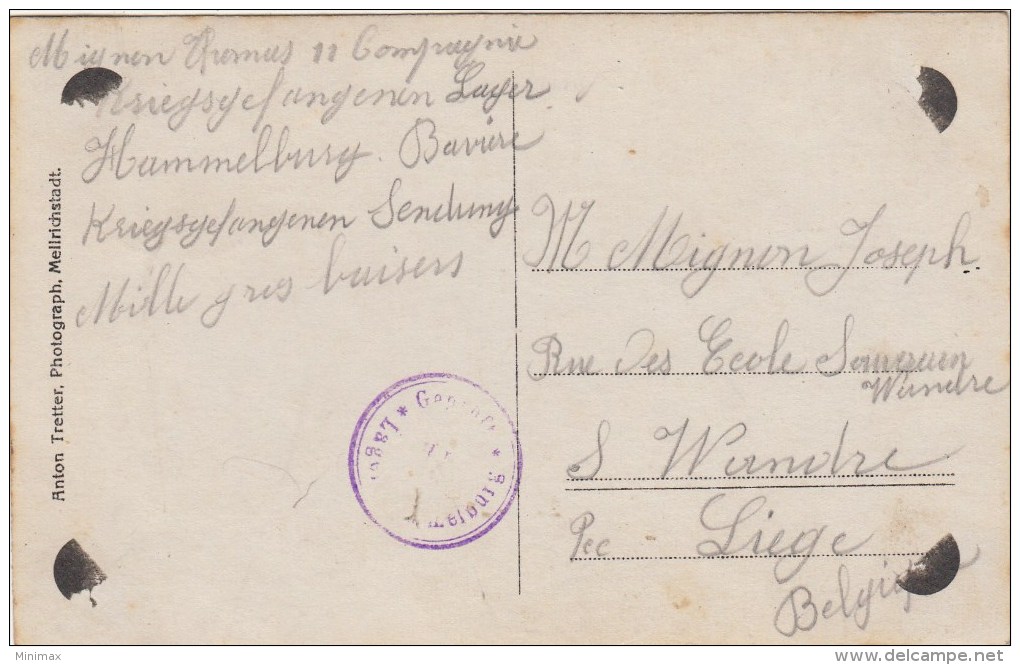 Mignon Thomas 11 Compagnie
Kriegsgefangenen Lager
Hammelburg. Bavière
Kriegsgefangenen Sendung
Mille gros baisers
Anton Tretter, Photograph, Mellrichstadt.
* Geprüft * Lager
M Mignon Joseph
Rue des Ecole
Wandre
S Wandre
Liege
Belgique
Minimax
www.delcampe.net